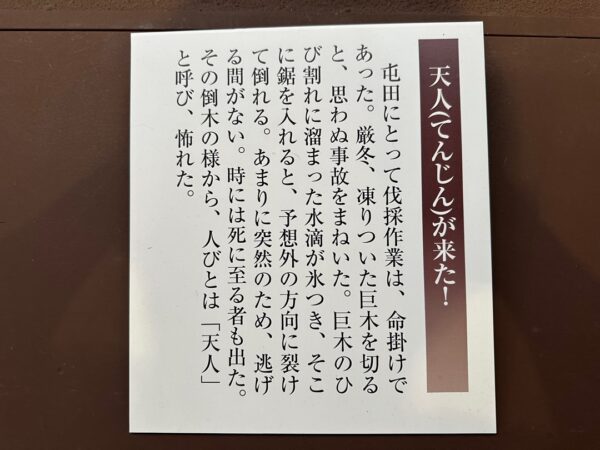 天人(てんじん)が来た!
屯田にとって伐採作業は、命掛けで
あった。厳冬、凍りついた巨木を切る
と、思わぬ事故をまねいた。巨木のひ
び割れに溜まった水滴が氷つき、そこ
に鋸を入れると、予想外の方向に裂け
て倒れる。あまりに突然のため、逃げ
る間がない。時には死に至る者も出た。
その倒木の様から、人びとは「天人」
と呼び、怖れた。